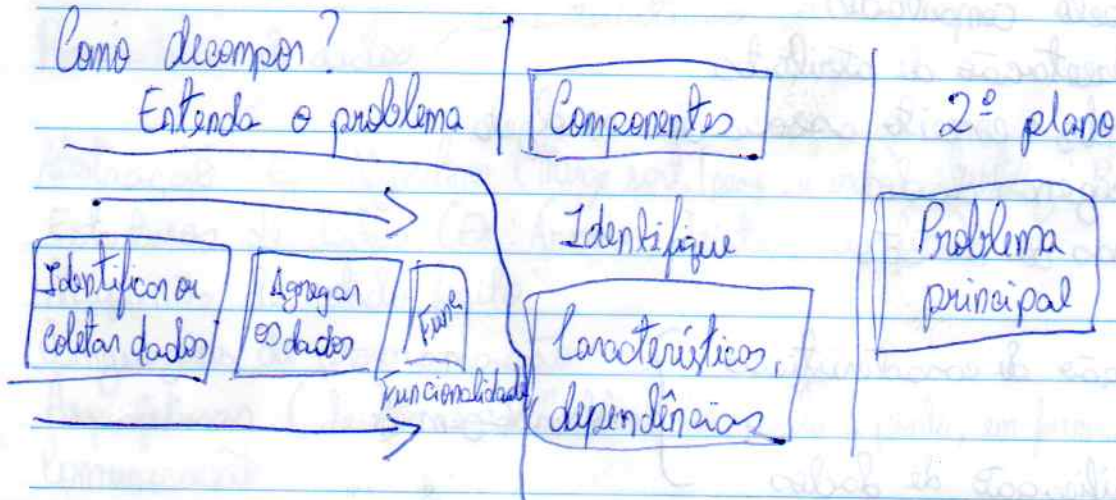 Como decompor?
Entenda o problema
Identificar ou
coletar dados
Agregar
os dados
Func.
Funcionalidade
Componentes
Identifique
Características,
dependências
2º plano
Problema
principal